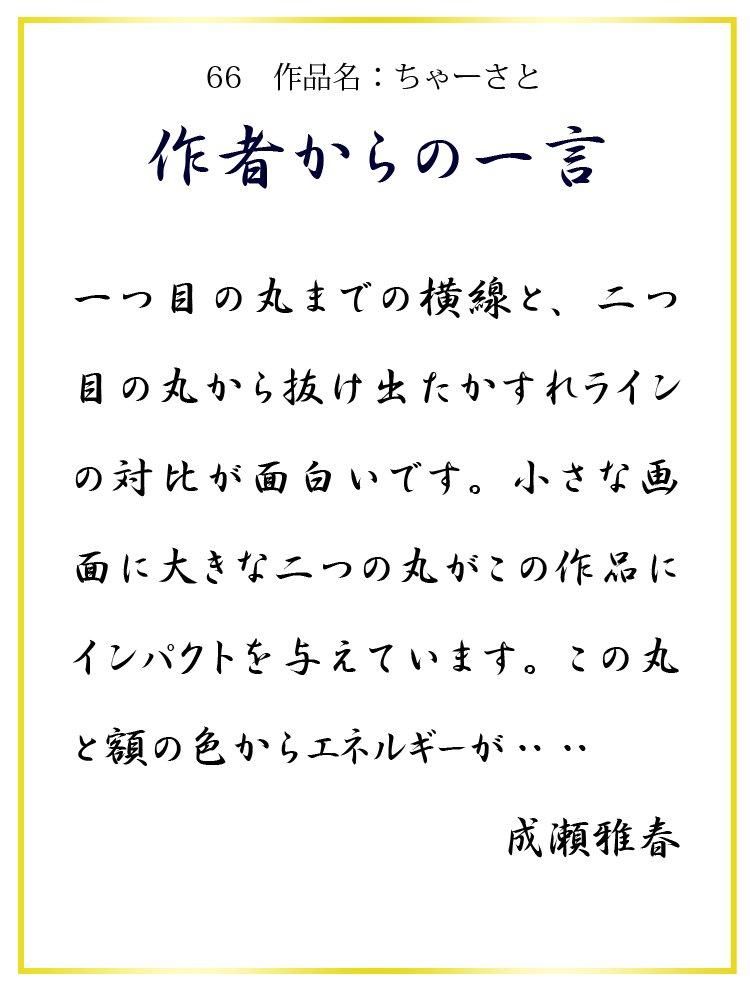 66　作品名：ちゃーさと
作者からの一言
一つ目の丸までの横線と、二つ
目の丸から抜け出たかすれライン
の対比が面白いです。小さな画
面に大きな二つの丸がこの作品に
インパクトを与えています。この丸
と額の色からエネルギーが‥‥
成瀬雅春